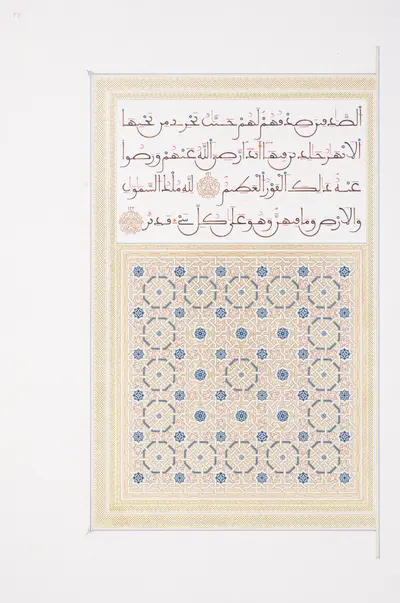 الصّٰدقين صدقهم لهم جنّٰت تجرى من تحتها
الانهٰر خٰلدين فيها أبدا رضى الله عنهم ورضوا
عنه ذٰلك الفوز العظيم لله ملك السمٰوٰت
والارض وما فيهن وهو على كل شىء قدير